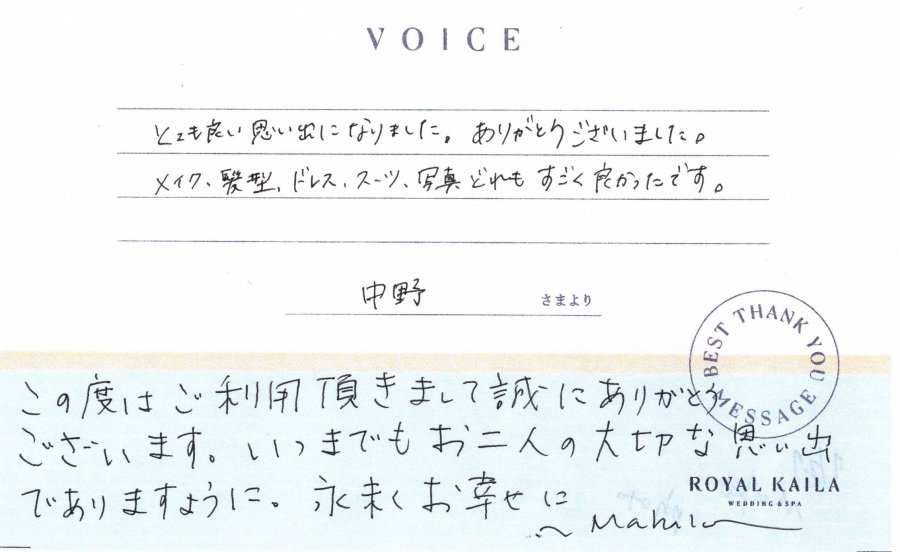 VOICE
とても良い思い出になりました。ありがとうございました。
メイク、髪型、ドレス、スーツ、写真どれもすごく良かったです。
中野 さまより
BEST THANK YOU MESSAGE
この度はご利用頂きまして誠にありがとう
ございます。いつまでもお二人の大切な思い出
でありますように。永末くお幸せに
ROYAL KAILA
WEDDING & SPA